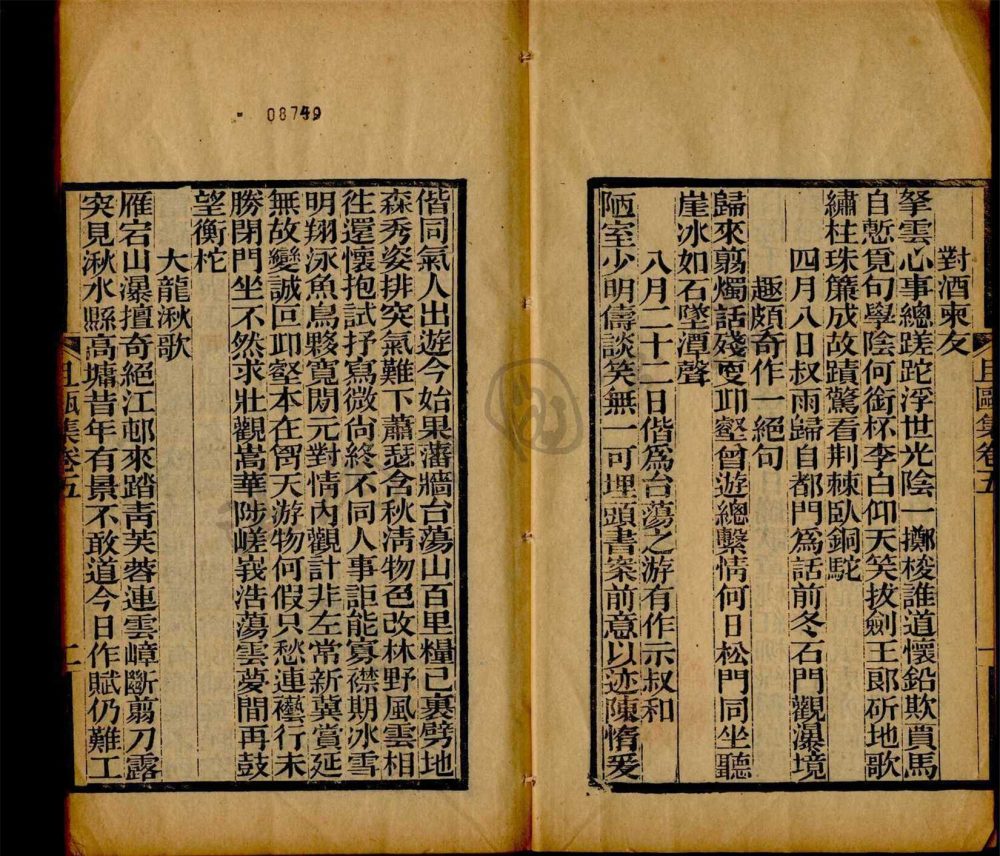 對酒東友
拏雲心事總蹉跎浮世光陰一擲梭誰道懷鉛欺賈馬
自慙覓句學陰何銜杯李白仰天笑拔劍王郎斫地歌
繡柱珠簾成故蹟驚看荆棘臥銅駝
四月八日叔雨歸自都門為話前冬石門觀瀑境
趣頗奇作一絕句
歸來翦燭話殘更卭壑曾遊總繫情何日松門同坐聽
崖冰如石墜潭聲
八月二十二日偕為台蕩之游有作示叔和
陋室少明儔談笑無一可埋頭書案前意以迹陳惰爰
且甌集卷五
一
偕同氣人出遊今始果藩牆台蕩山百里糧已裹劈地
森秀姿排突氣難下蕭瑟含秋淸物色改林野風雲相
徃還懷抱試抒寫微尙終不同人事詎能寡襟期冰雪
明翔泳魚鳥夥寬閒元對情內觀計非左常新冀賞延
無故變誠叵卭壑本在胷天游物何假只愁連襼行未
勝閉門坐不然求壯觀嵩華陟嵯峩浩蕩雲夢間再鼓
望衡柁
大龍湫歌
雁宕山瀑擅奇絕江邨來踏靑芙蓉連雲嶂斷翦刀露
突見湫水縣高墉昔年有景不敢道今日作賦仍難工
且甌集卷五
二
08749